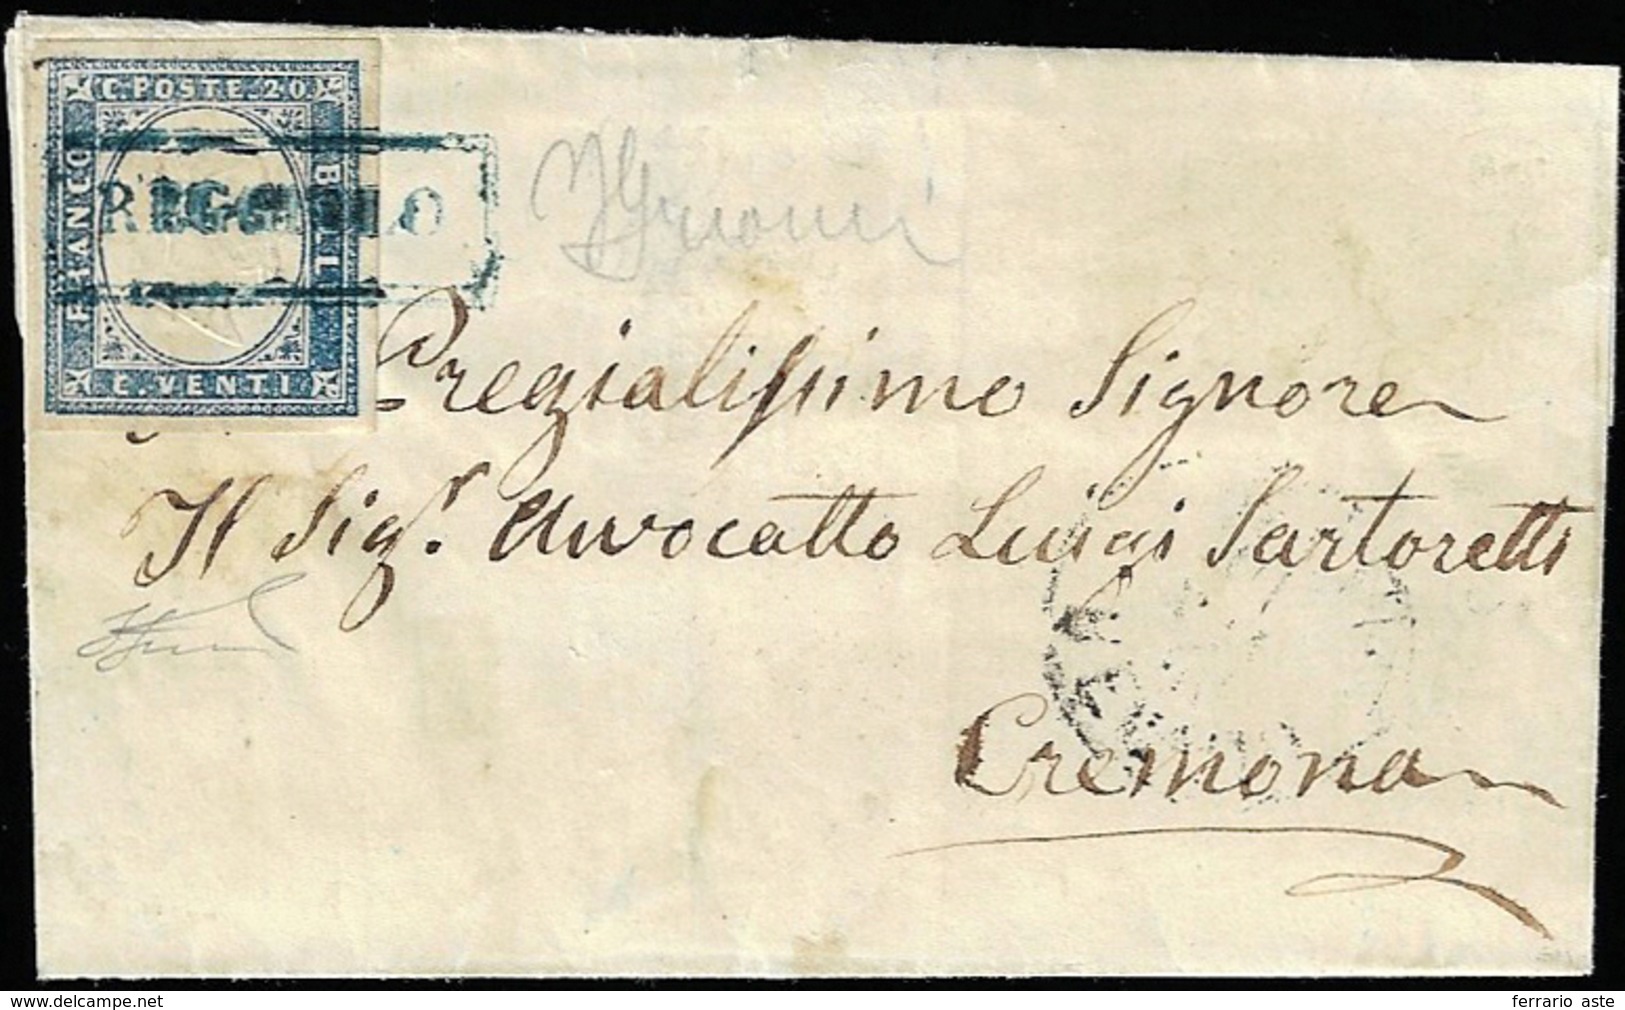 C. POSTE. 20
FRANCO
BOLLO
C. VENTI
REGGIOLO
Pregialissimo Signore
Il Sigr. Avvocatto Luigi Sartoretti
Cremona
© DELCAMPE
ferrario aste